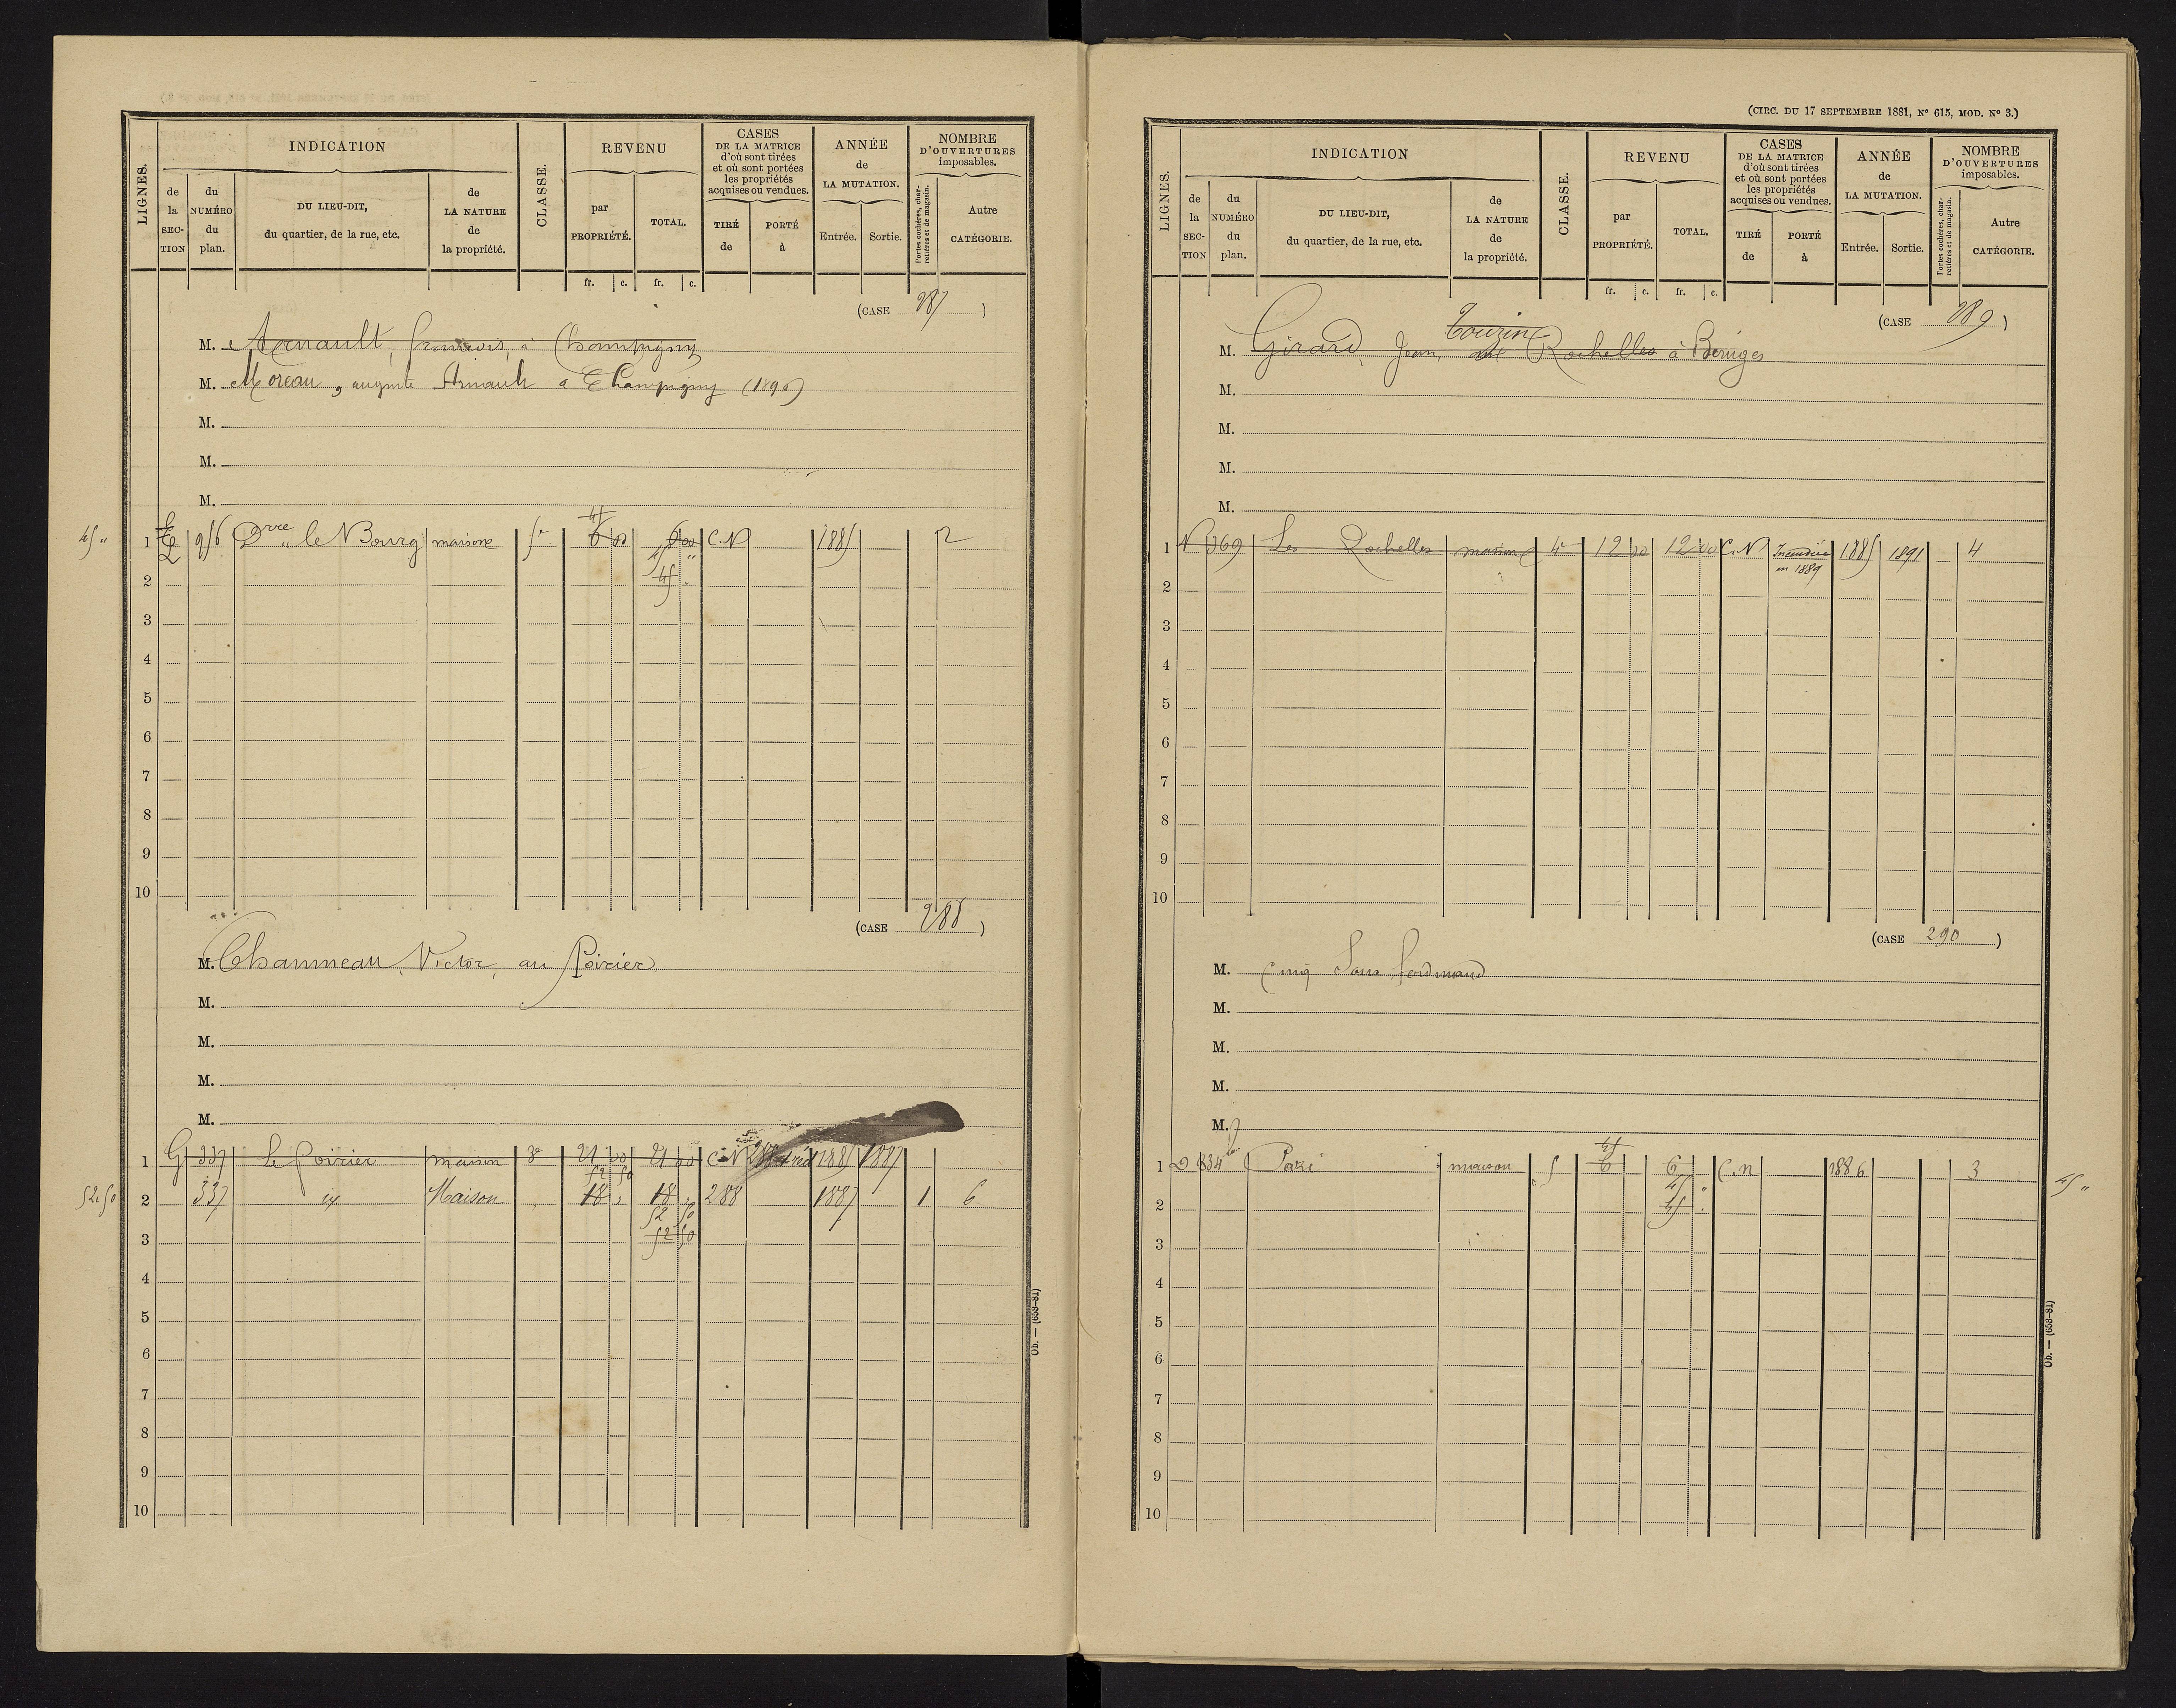 LIGNES.
INDICATION
de la SECTION
du NUMÉRO du plan.
DU LIEU-DIT, du quartier, de la rue, etc.
de LA NATURE de la propriété.
CLASSE.
REVENU
par PROPRIÉTÉ.
TOTAL.
fr. c. fr. c.
CASES DE LA MATRICE d'où sont tirées et où sont portées les propriétés acquises ou vendues.
TIRÉ de
PORTÉ à
ANNÉE de LA MUTATION.
Entrée. Sortie.
NOMBRE D'OUVERTURES imposables.
Portes cochères, charretières et de magasin.
Autre CATÉGORIE.
(CASE 287)
M. Arnault, françois, à Champigny
M. Moreau, auguste Arnault a Champigny (1890)
M.
M.
M.
45 "
1 956 le Bourg maison 5e 6 00 6 00 C.N 1885 2
45
45 "
2 45
3
4
5
6
7
8
9
10
(CASE 288)
M. Chammeau, Victor, au Poirier
M.
M.
M.
M.
1 G 337 Le Poirier maison 3e 21 00 21 00 C.N 288 1885 1887
52 50
52.50
2 337 Maison 18 18 288 1887 1 6
52 50
3 52 50
4
5
6
7
8
9
10
Ob. — (653-81)
(CIRC. DU 17 SEPTEMBRE 1881, N° 615, MOD. N° 3.)
LIGNES.
INDICATION
de la SECTION
du NUMÉRO du plan.
DU LIEU-DIT, du quartier, de la rue, etc.
de LA NATURE de la propriété.
CLASSE.
REVENU
par PROPRIÉTÉ.
TOTAL.
fr. c. fr. c.
CASES DE LA MATRICE d'où sont tirées et où sont portées les propriétés acquises ou vendues.
TIRÉ de
PORTÉ à
ANNÉE de LA MUTATION.
Entrée. Sortie.
NOMBRE D'OUVERTURES imposables.
Portes cochères, charretières et de magasin.
Autre CATÉGORIE.
(CASE 289)
Touzin
M. Girard, Jean, aux Rochelles à Béruges
M.
M.
M.
M.
1 N 369 Les Rochelles maison 4e 12 00 12 00 C.N Incendié en 1889 1885 1891 4
2
3
4
5
6
7
8
9
10
(CASE 290)
M. Cinq Sous ferdinand
M.
M.
M.
M.
45
1 D 834 maison 5 6 6 C.n 1886 3
45 "
45
2 45
3
4
5
6
7
8
9
10
Ob. — (653-81)